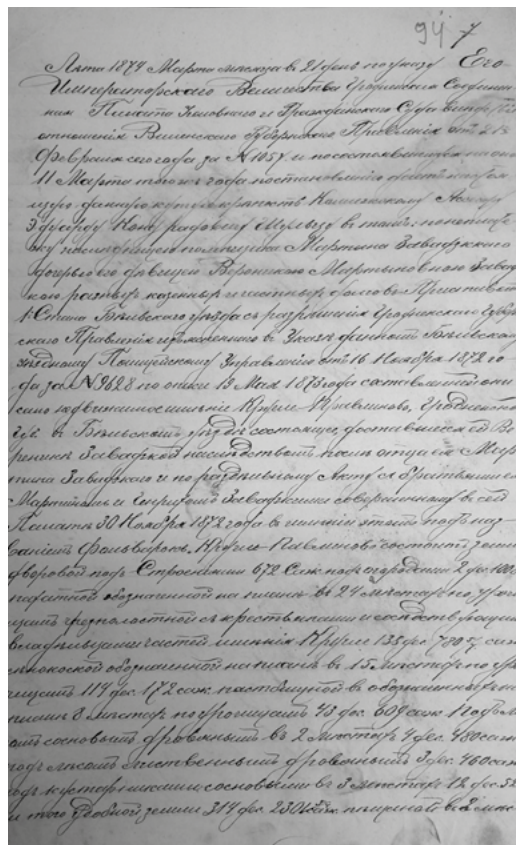 94 7
Лѣта 1874 Марта мѣсяца въ 21 день по указу Его
Императорского Величества Гродненская Соединен
ная Палата Уголовного и Гражданского Суда
отношенія Виленского Губернского Правленія отъ 213
Февраля сего года за № 1057 и по состоявшемуся на оно
11 Марта того же года постановленію
Коллежскому Ассесо
Эдуарду
жу помѣщика Мартина Завадзкого
дочерью его дѣвицей Вероникою Мартыновною Завад
кою разныхъ казенныхъ и частныхъ долговъ Приставомъ
1 Стана Бѣльского уѣзда съ разрѣшенія Гродненского Губерн
ского Правленія изложенного въ Указѣ данномъ Бѣльскому
уѣздному Полицейскому Управленію отъ 16 Ноября 1872 го
да за № 9628 по описи 19 Мая 1873 года составленной опи
сано недвижимое имѣніе Гродненской
губ. въ Бѣльскомъ уѣздѣ состоящее, доставшееся ей Ве
роникѣ Завадзкой наслѣдствомъ послѣ отца ея Мар
тина Завадзкого и по раздѣльному Акту съ братьями ея
Мартиномъ и Генрихомъ Завадзкими совершенному въ сей
Палатѣ 30 Ноября 1872 года въ имѣніи этомъ подъ наз
ваніемъ Фольваркъ состоитъ земли
дворовой подъ Строеніями 672 Саж. подъ огородами 2 дес. 100
пахатной обозначенной на планѣ въ 24 мѣстахъ по уро
чищамъ чрезполостной съ крестьянами и сосѣдствующими
владѣльцами частей имѣнія 135 дес. 780 саж.
сѣнокосной обозначенной на планѣ въ 15 мѣстахъ по уро
чищамъ 114 дес. 172 саж. пастбищной въ обозначенныхъ на
планѣ 8 мѣстахъ по урочищамъ 43 дес. 609 саж. подъ лѣ
сомъ сосновымъ дровянымъ въ 2 мѣстахъ 4 дес. 480 саж.
подъ лѣсомъ лиственнымъ дровянымъ 3 дес. 460 саж.
подъ кустарниками сосновыми въ 3 мѣстахъ 12 дес.
и того удобной земли 314 дес. 230 саж. въ 2 мѣс